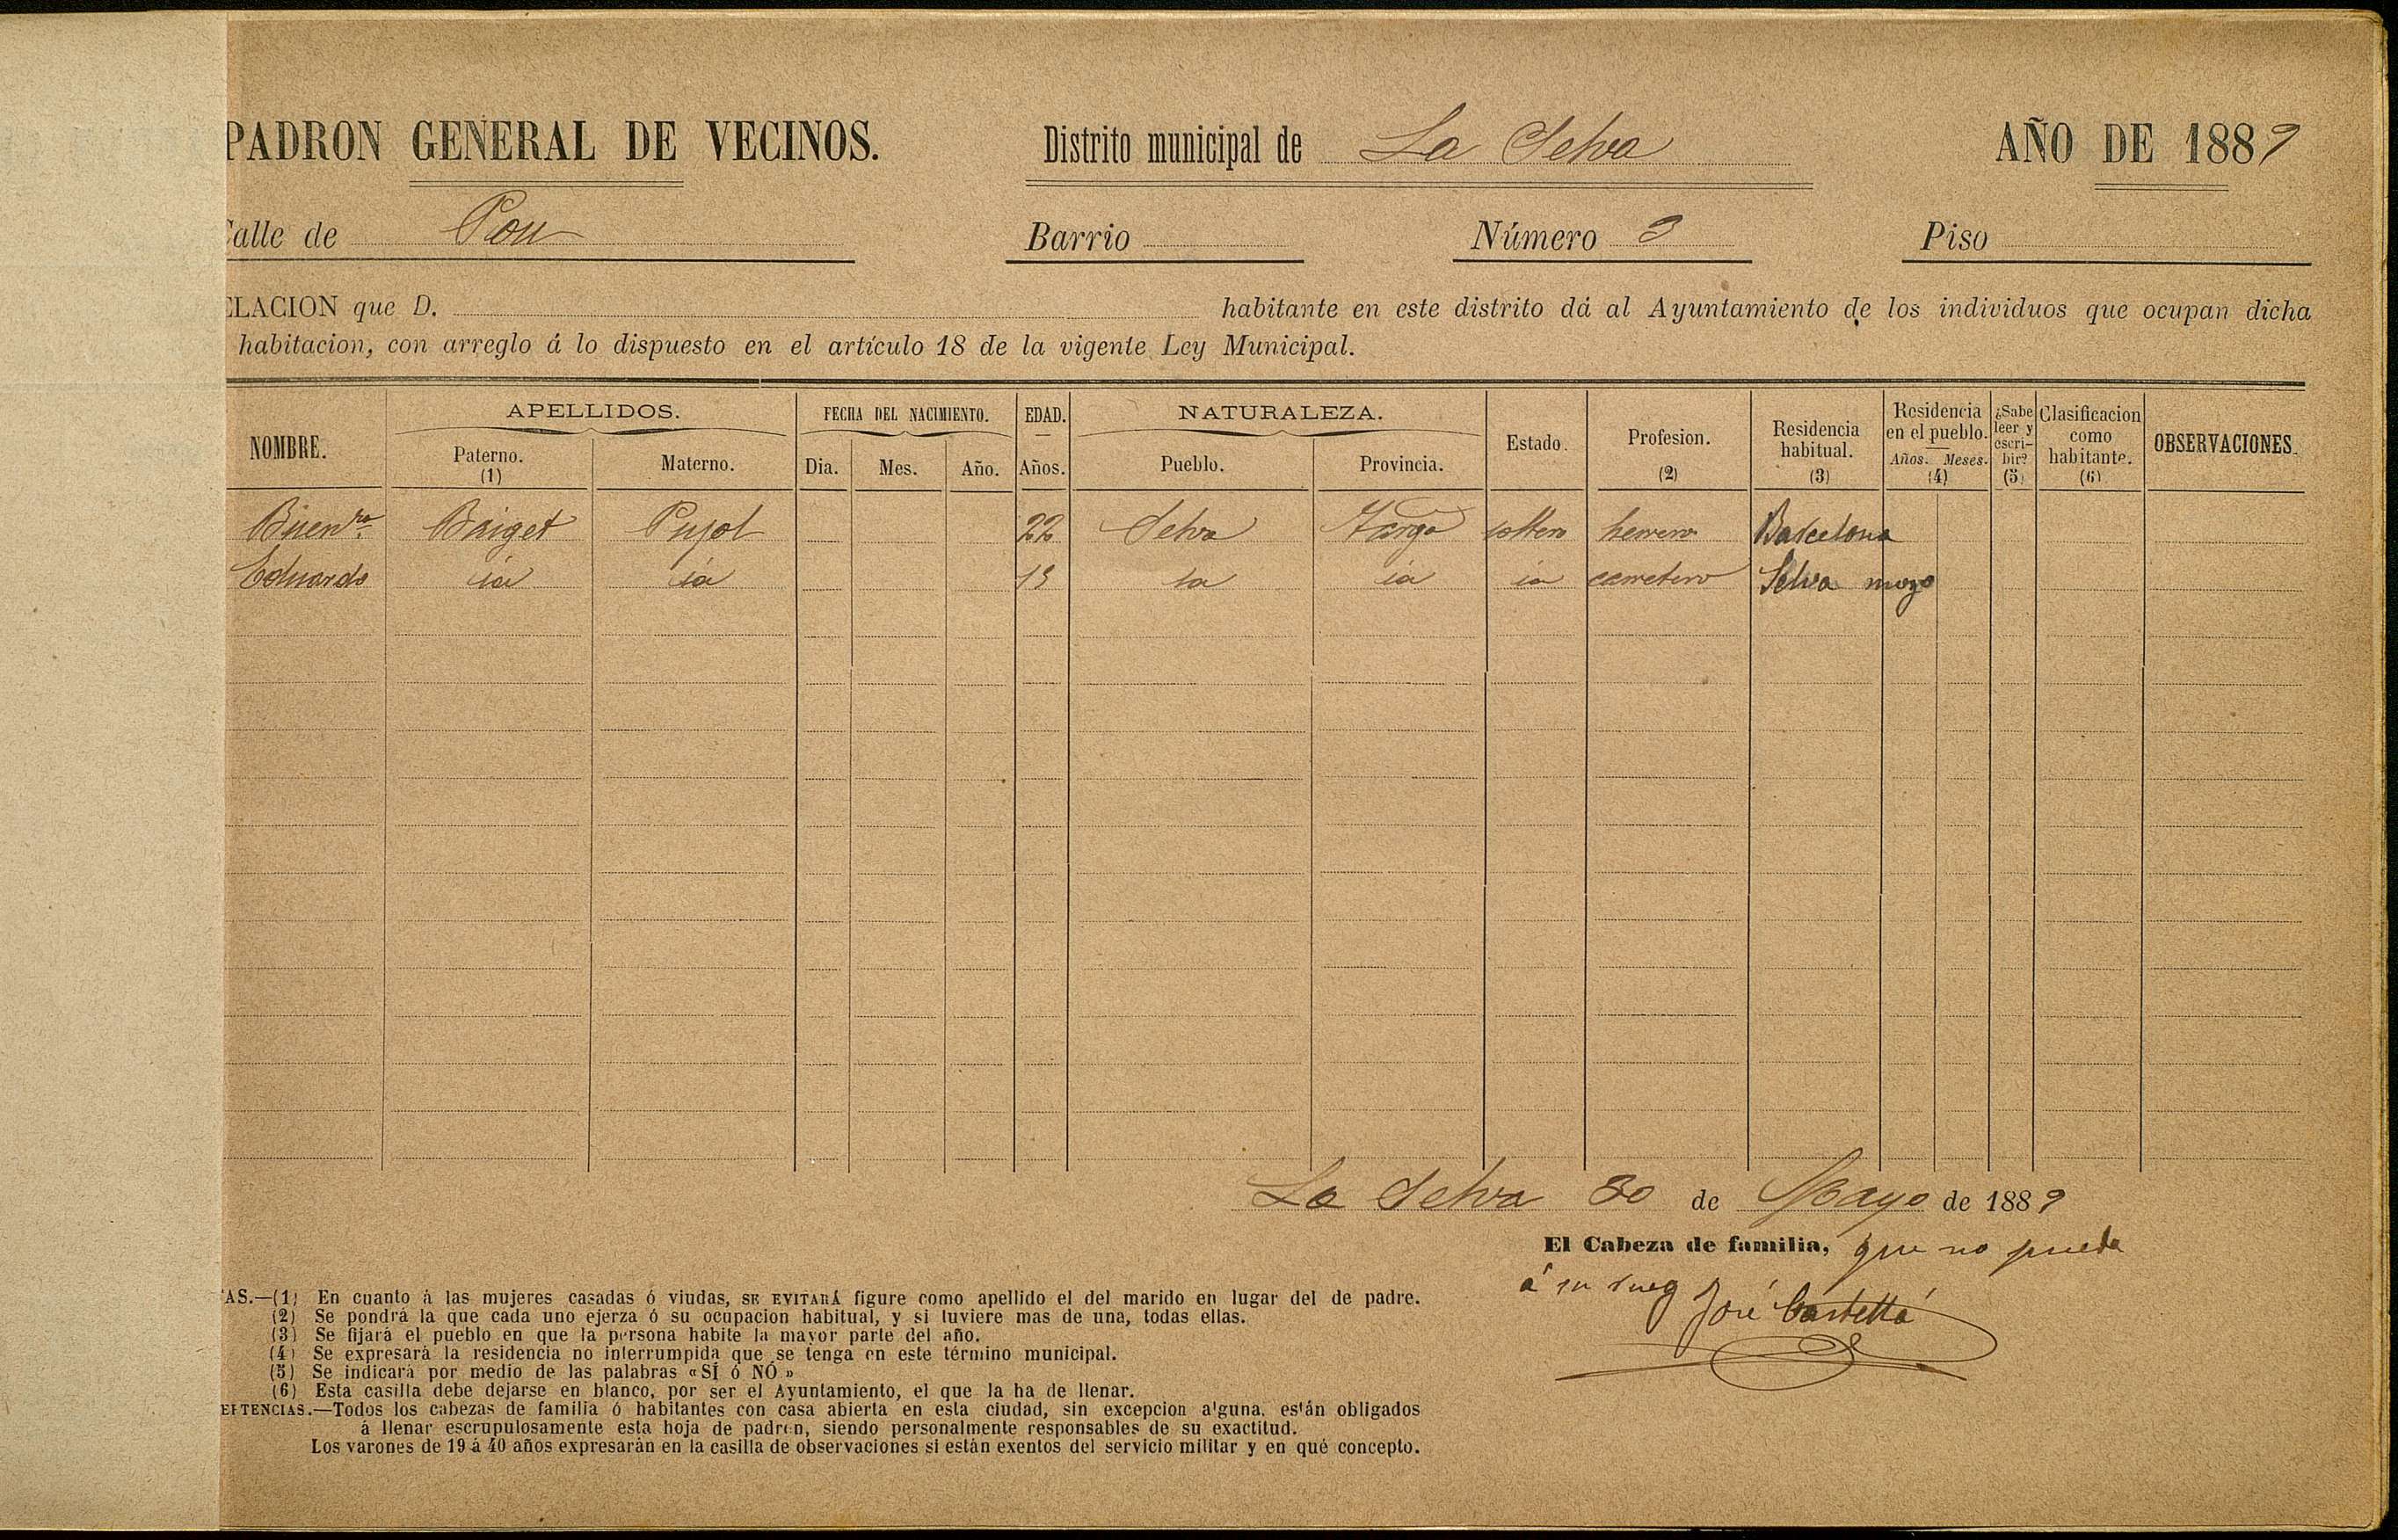 PADRON GENERAL DE VECINOS. Distrito municipal de La Selva AÑO DE 1889
Calle de Pou Barrio Número 3 Piso
ELACION que D. habitante en este distrito dá al Ayuntamiento de los individuos que ocupan dicha
habitacion, con arreglo á lo dispuesto en el artículo 18 de la vigente Ley Municipal.
NOMBRE. APELLIDOS. Paterno. (1) Materno. FECHA DEL NACIMIENTO. Dia. Mes. Año. EDAD. Años. NATURALEZA. Pueblo. Provincia. Estado. Profesion. (2) Residencia habitual. (3) Residencia en el pueblo. Años. Meses. (4) ¿Sabe leer y escribir? (5) Clasificacion como habitante. (6) OBSERVACIONES.
Buenra. Baiget Pujol 22 Selva Targa soltero herrero Barcelona
Eduardo id id 13 id id id carretero Selva mozo
La Selva 30 de Mayo de 1889
El Cabeza de familia, que no pueda
á su rueg José Castellá
AS.—(1) En cuanto á las mujeres casadas ó viudas, SE EVITARÁ figure como apellido el del marido en lugar del de padre.
(2) Se pondrá la que cada uno ejerza ó su ocupacion habitual, y si tuviere mas de una, todas ellas.
(3) Se fijará el pueblo en que la persona habite la mayor parte del año.
(4) Se expresará la residencia no interrumpida que se tenga en este término municipal.
(5) Se indicará por medio de las palabras «SÍ ó NÓ»
(6) Esta casilla debe dejarse en blanco, por ser el Ayuntamiento, el que la ha de llenar.
ERTENCIAS.—Todos los cabezas de familia ó habitantes con casa abierta en esta ciudad, sin excepcion alguna, están obligados
á llenar escrupulosamente esta hoja de padron, siendo personalmente responsables de su exactitud.
Los varones de 19 á 40 años expresarán en la casilla de observaciones si están exentos del servicio militar y en qué concepto.